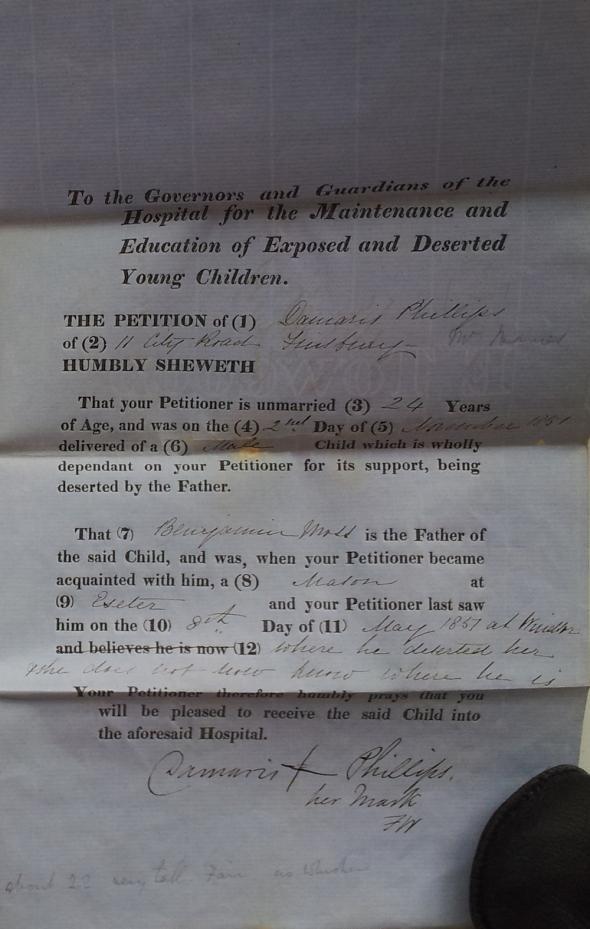 To the Governors and Guardians of the
Hospital for the Maintenance and
Education of Exposed and Deserted
Young Children.
THE PETITION of (1) Damaris Phillips
of (2) 11 City Road Finsbury
HUMBLY SHEWETH
That your Petitioner is unmarried (3) 24 Years
of Age, and was on the (4) 2nd Day of (5) November 1851
delivered of a (6) Male Child which is wholly
dependant on your Petitioner for its support, being
deserted by the Father.
That (7) Benjamin Moss is the Father of
the said Child, and was, when your Petitioner became
acquainted with him, a (8) Mason at
(9) Exeter and your Petitioner last saw
him on the (10) 8th Day of (11) May 1851 at Windsor
and believes he is now (12) where he deserted her
& she does not now know where he is
Your Petitioner therefore humbly prays that you
will be pleased to receive the said Child into
the aforesaid Hospital.
Damaris + Phillips.
her Mark
FW
about 22 very tall Fair no Whisker